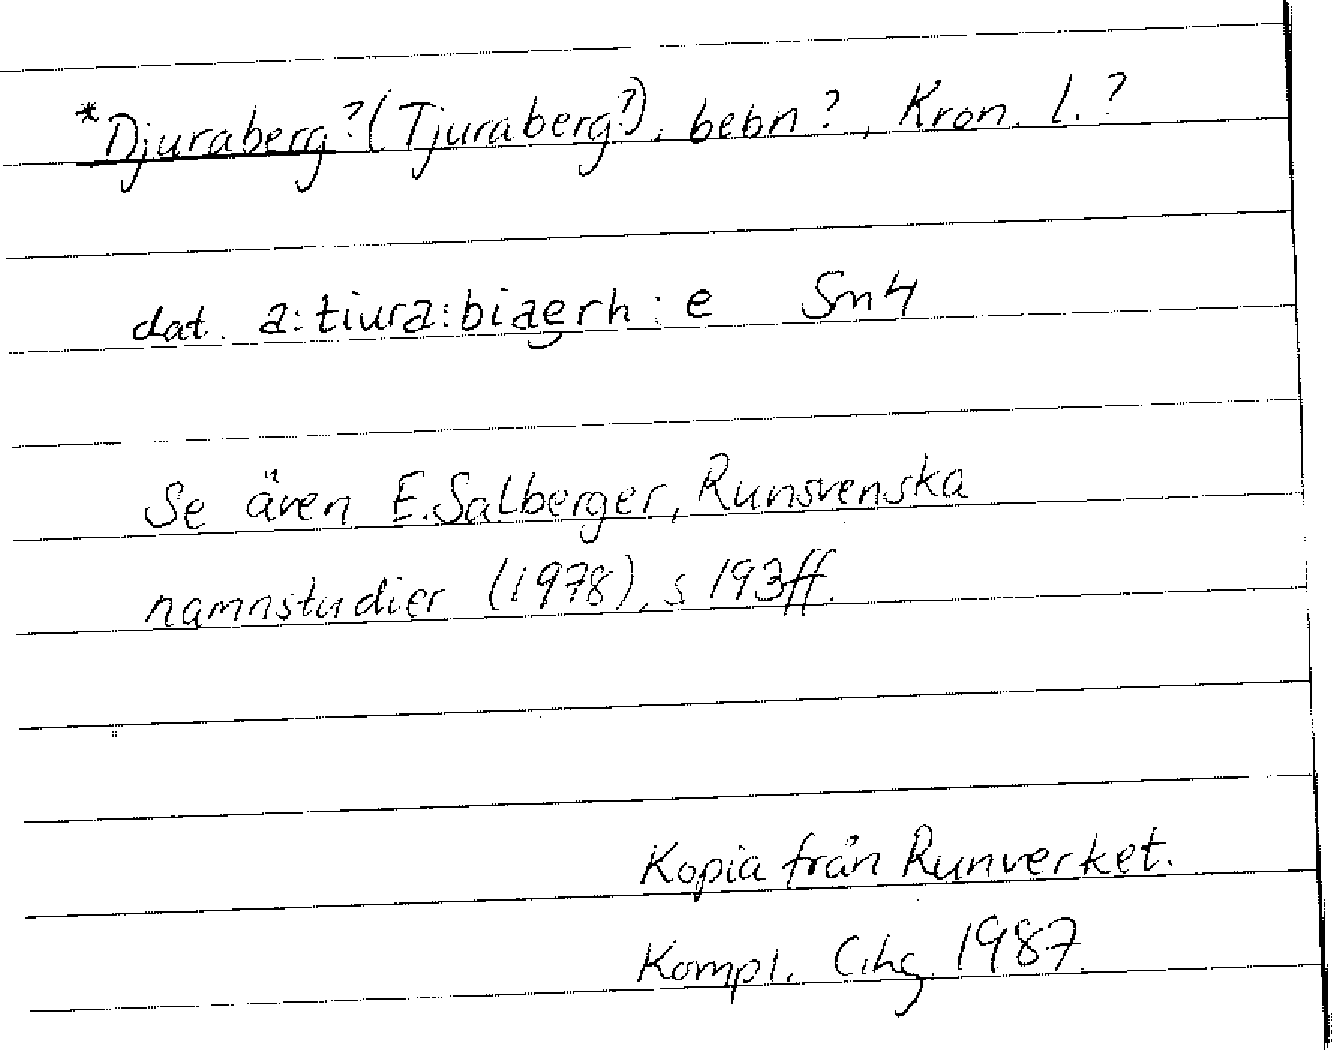 *Djuraberg? (Tjuraberg?), bebn?, Kron. l.?
dat. a:tiura:biaerh:e Sm 4
Se även E.Salberger, Runsvenska
namnstudier (1978), s 193ff.
Kopia från Runverket.
Kompl. 1987.